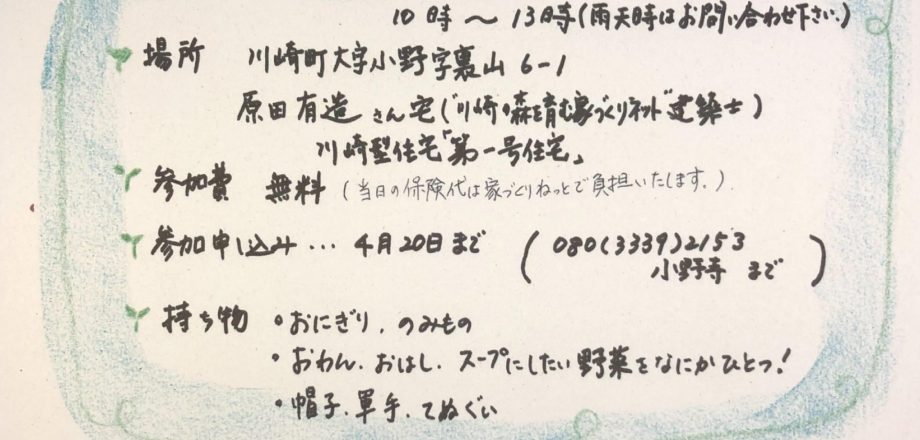 10時～13時(雨天時はお問い合わせ下さい。)
場所 川崎町大字小野字裏山6-1
原田有造さん宅("川崎・森を育む家づくりネット"建築士)
川崎型住宅「第一号住宅」
参加費 無料 (当日の保険代は家づくりねっとで負担いたします。)
参加申し込み… 4月20日まで (080(3339)2153
小野寺 まで)
持ち物 ・おにぎり、のみもの
・おわん、おはし、スープにしたい野菜をなにかひとつ!
・帽子、軍手、てぬぐい